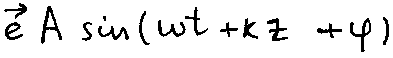 e⃗ A sin(ωt + kz + φ)